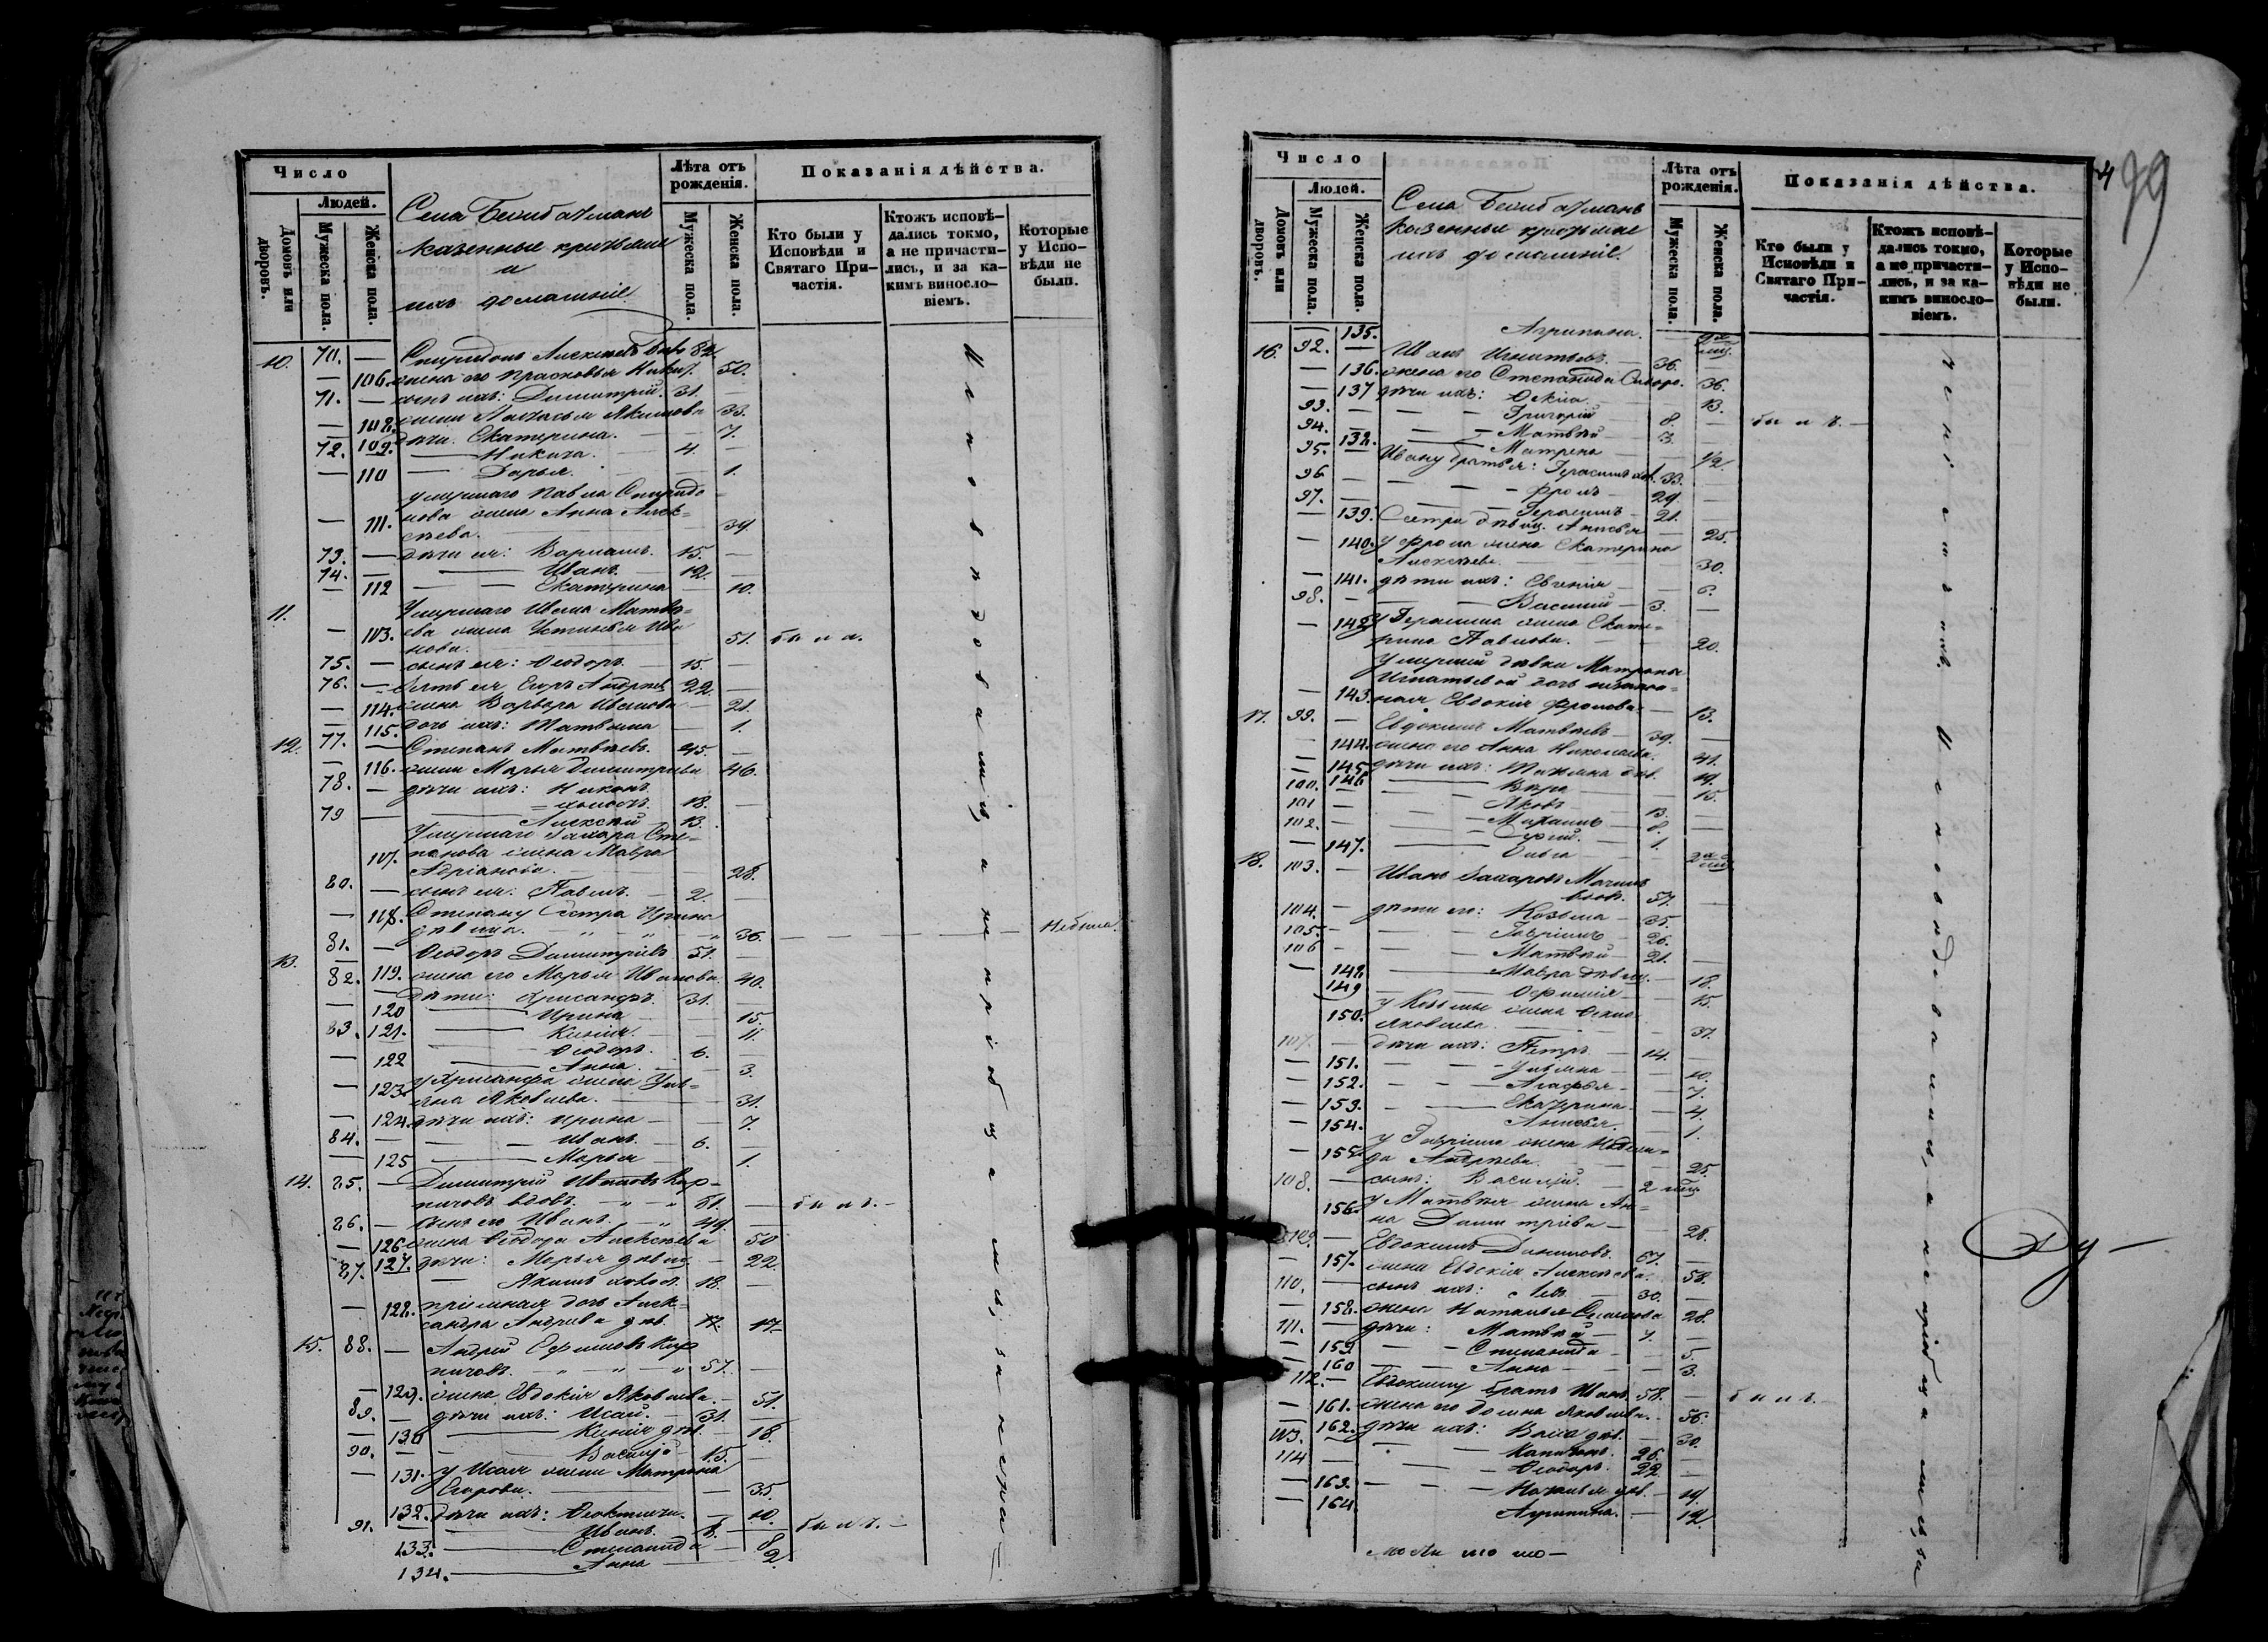 Число
Людей.
Домовъ или дворовъ.
Мужеска пола.
Женска пола.
Села
казенные
и
ихъ домашніе
Лѣта отъ рожденія.
Мужеска пола.
Женска пола.
Показанія дѣйства.
Кто были у Исповѣди и Святаго При-
частія.
Ктожъ исповѣ-
дались токмо,
а не причасти-
лись, и за ка-
кимъ винносло-
віемъ.
Которые
у Испо-
вѣди не
были.
10. 70. — Спиридонъ Алексѣевъ 82.
— 106. жена его Прасковья 50.
71. — сынъ ихъ: Димитрій. 31. —
108. жена Акимова 33.
— 109. дѣти: Екатерина. — 7.
72. — Никита. — 4. —
— 110 — Дарья. 1.
умершаго Павла Спиридо-
нова жена Анна Алек-
— 111. сѣева. 39.
73. — дѣти ея: Варлаамъ. 15. —
74. — Иванъ. 12. —
— 112 — Екатерина — 10.
11. Умершаго Ивана Матвѣ-
— 113. ева жена Устинья Ива-
нова. 51. была.
75. — сынъ ея: Ѳеодоръ 15. —
76. — зять ея Егоръ Андреев 22. —
— 114. жена Варвара Иванова — 21.
— 115. дочь ихъ: Татьяна — 1.
12. 77. — Степанъ Матвѣевъ. 45. —
— 116. жена Марья Димитріева 46.
78. — дѣти ихъ: Никонъ
холостъ. 18. —
79 — Алексѣй 13.
Умершаго Захара Сте-
117. панова жена Мавра
Адріанова. 28.
80. — сынъ ея: Павелъ. 2. —
— 118. Степану сестра Ирина
дѣвица. 36. Небыла.
13. 81. — Ѳеодоръ Димитріевъ 51. —
119. жена его Марья Иванова. 40.
82. — дѣти: Хрисанфъ. 31. —
120 — Ирина 15.
121. — Ксенія. 11.
83. — Ѳеодоръ. 6. —
— 122 Анна. 3.
— 123. у Хрисанфа жена Улі-
яна Яковлева. 31.
— 124. дѣти ихъ: Ирина — 7.
84. — Иванъ. 6. —
— 125 — Марья 1.
14. 85. — Димитрій Ивановъ Кир-
пичовъ вдовъ. 81. — былъ.
86. — сынъ его Иванъ. 49. —
— 126 жена Ѳеодора Алексѣева 50
127. дѣти: Марья дѣвица 22.
87. — Якимъ холост. 18. —
— 128. пріемная дочь Алек-
сандра Андреева дѣв. 17.
15. 88. — Андрей Ефимовъ Кир-
пичовъ. 57. —
— 129. жена Евдокія Яковлева. — 51.
89. — дѣти ихъ: Исай. 31. —
— 130 — Ксенія дѣв. 18.
90. — Василій 15. —
— 131. у Исая жена Матрона
Егорова. 35.
132. дѣти ихъ: Ѳеоктиста 10.
91. — Иванъ. былъ.
133. Степанида 8
134. Анна 2.
Исповѣдовались, а не пріобщались, за нера-
4
99
Число
Людей.
Домовъ или дворовъ.
Мужеска пола.
Женска пола.
Села
казенные
ихъ домашніе.
Лѣта отъ рожденія.
Мужеска пола.
Женска пола.
Показанія дѣйства.
Кто были у
Исповѣди и
Святаго При-
частія.
Ктожъ исповѣ-
дались токмо,
а не причасти-
лись, и за ка-
кимъ винносло-
віемъ.
Которые
у Испо-
вѣди не
были.
135. Агрипина.
16. 92. — Иванъ Игнатьевъ. 36. —
— 136. жена его Степанида 36.
— 137 дѣти ихъ: 13.
93. — Григорій 8. — былъ. —
94. — Матвѣй 3. —
138. Матрена 1/2.
95. — Ивану братья: Герасимъ хол. 33. —
96 — Фролъ 29. —
97. — Герасимъ 21. —
— 139. Сестра дѣвиц. Анисья 25.
— 140. у Фрола жена Екатерина
Алексѣева. 30.
— 141. дѣти ихъ: Евгенія 6.
98. — Василій 3. —
— 142 у Герасима жена Екате-
рина Павлова. 20.
умершей дѣвки Матроны
Игнатьевой дочь незакон-
— 143. ная Евдокія Фролова. 13.
17. 99. — Евдокимъ Матвѣевъ 39. —
— 144. жена его Анна Николаева. 41.
— 145 дѣти ихъ: Татьяна дѣв. 19.
— 146 Вѣра 15.
100. — Яковъ 13. —
101 — Михаилъ 8. —
102. — 1.
— 147. Ольга
18. 103. — Иванъ Захаровъ
вдов. 57. —
104. — дѣти его: Козьма 35. —
105. — Гавріилъ 26. —
106 — Матвѣй 21. —
— 148 Мавра дѣвиц. 18.
149 — Ефимія 15.
у Козьмы жена
150. Яковлева. 37.
107. — дѣти ихъ: Петръ 14. —
— 151. Ульяна 10.
— 152. Агафья 7.
— 153. Екатерина 4.
— 154. Анисья. 1.
у Гавріила жена
— 155. Андреева. 25.
108. — сынъ: Василій. 2
156 у Матвѣя жена Ан-
на Димитріева 28.
109. — Евдокимъ 57. —
— 157. жена Евдокія Алексѣева. 58.
110. — сынъ ихъ: Левъ 30. —
— 158. жена Наталья 28.
111. — дѣти: Матвѣй 7. —
— 159 Степанида 5.
— 160 Анна 3.
112. — Евдокиму братъ Иванъ 58. — былъ.
— 161. жена его Домна Яковлева. 56.
162. дѣти ихъ: дѣв. 30.
113. — Капитонъ. 26. —
114 — Ѳеодоръ. 22. —
— 163. Наталья дѣв. 19.
— 164. Агрипина. 12.
деніемъ. Исповѣдовались, а не пріобщались, за